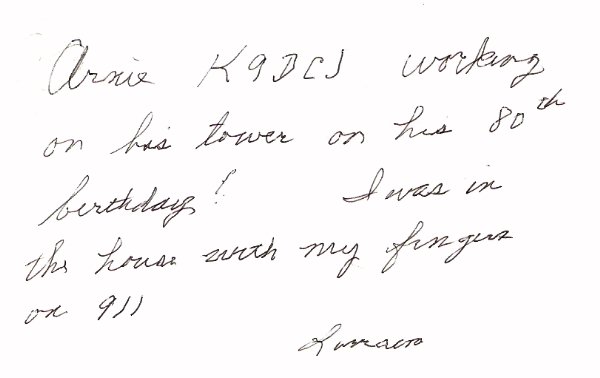 Arnie K9DCJ working
on his tower on his 80th
birthday! I was in
the house with my fingers
on 911